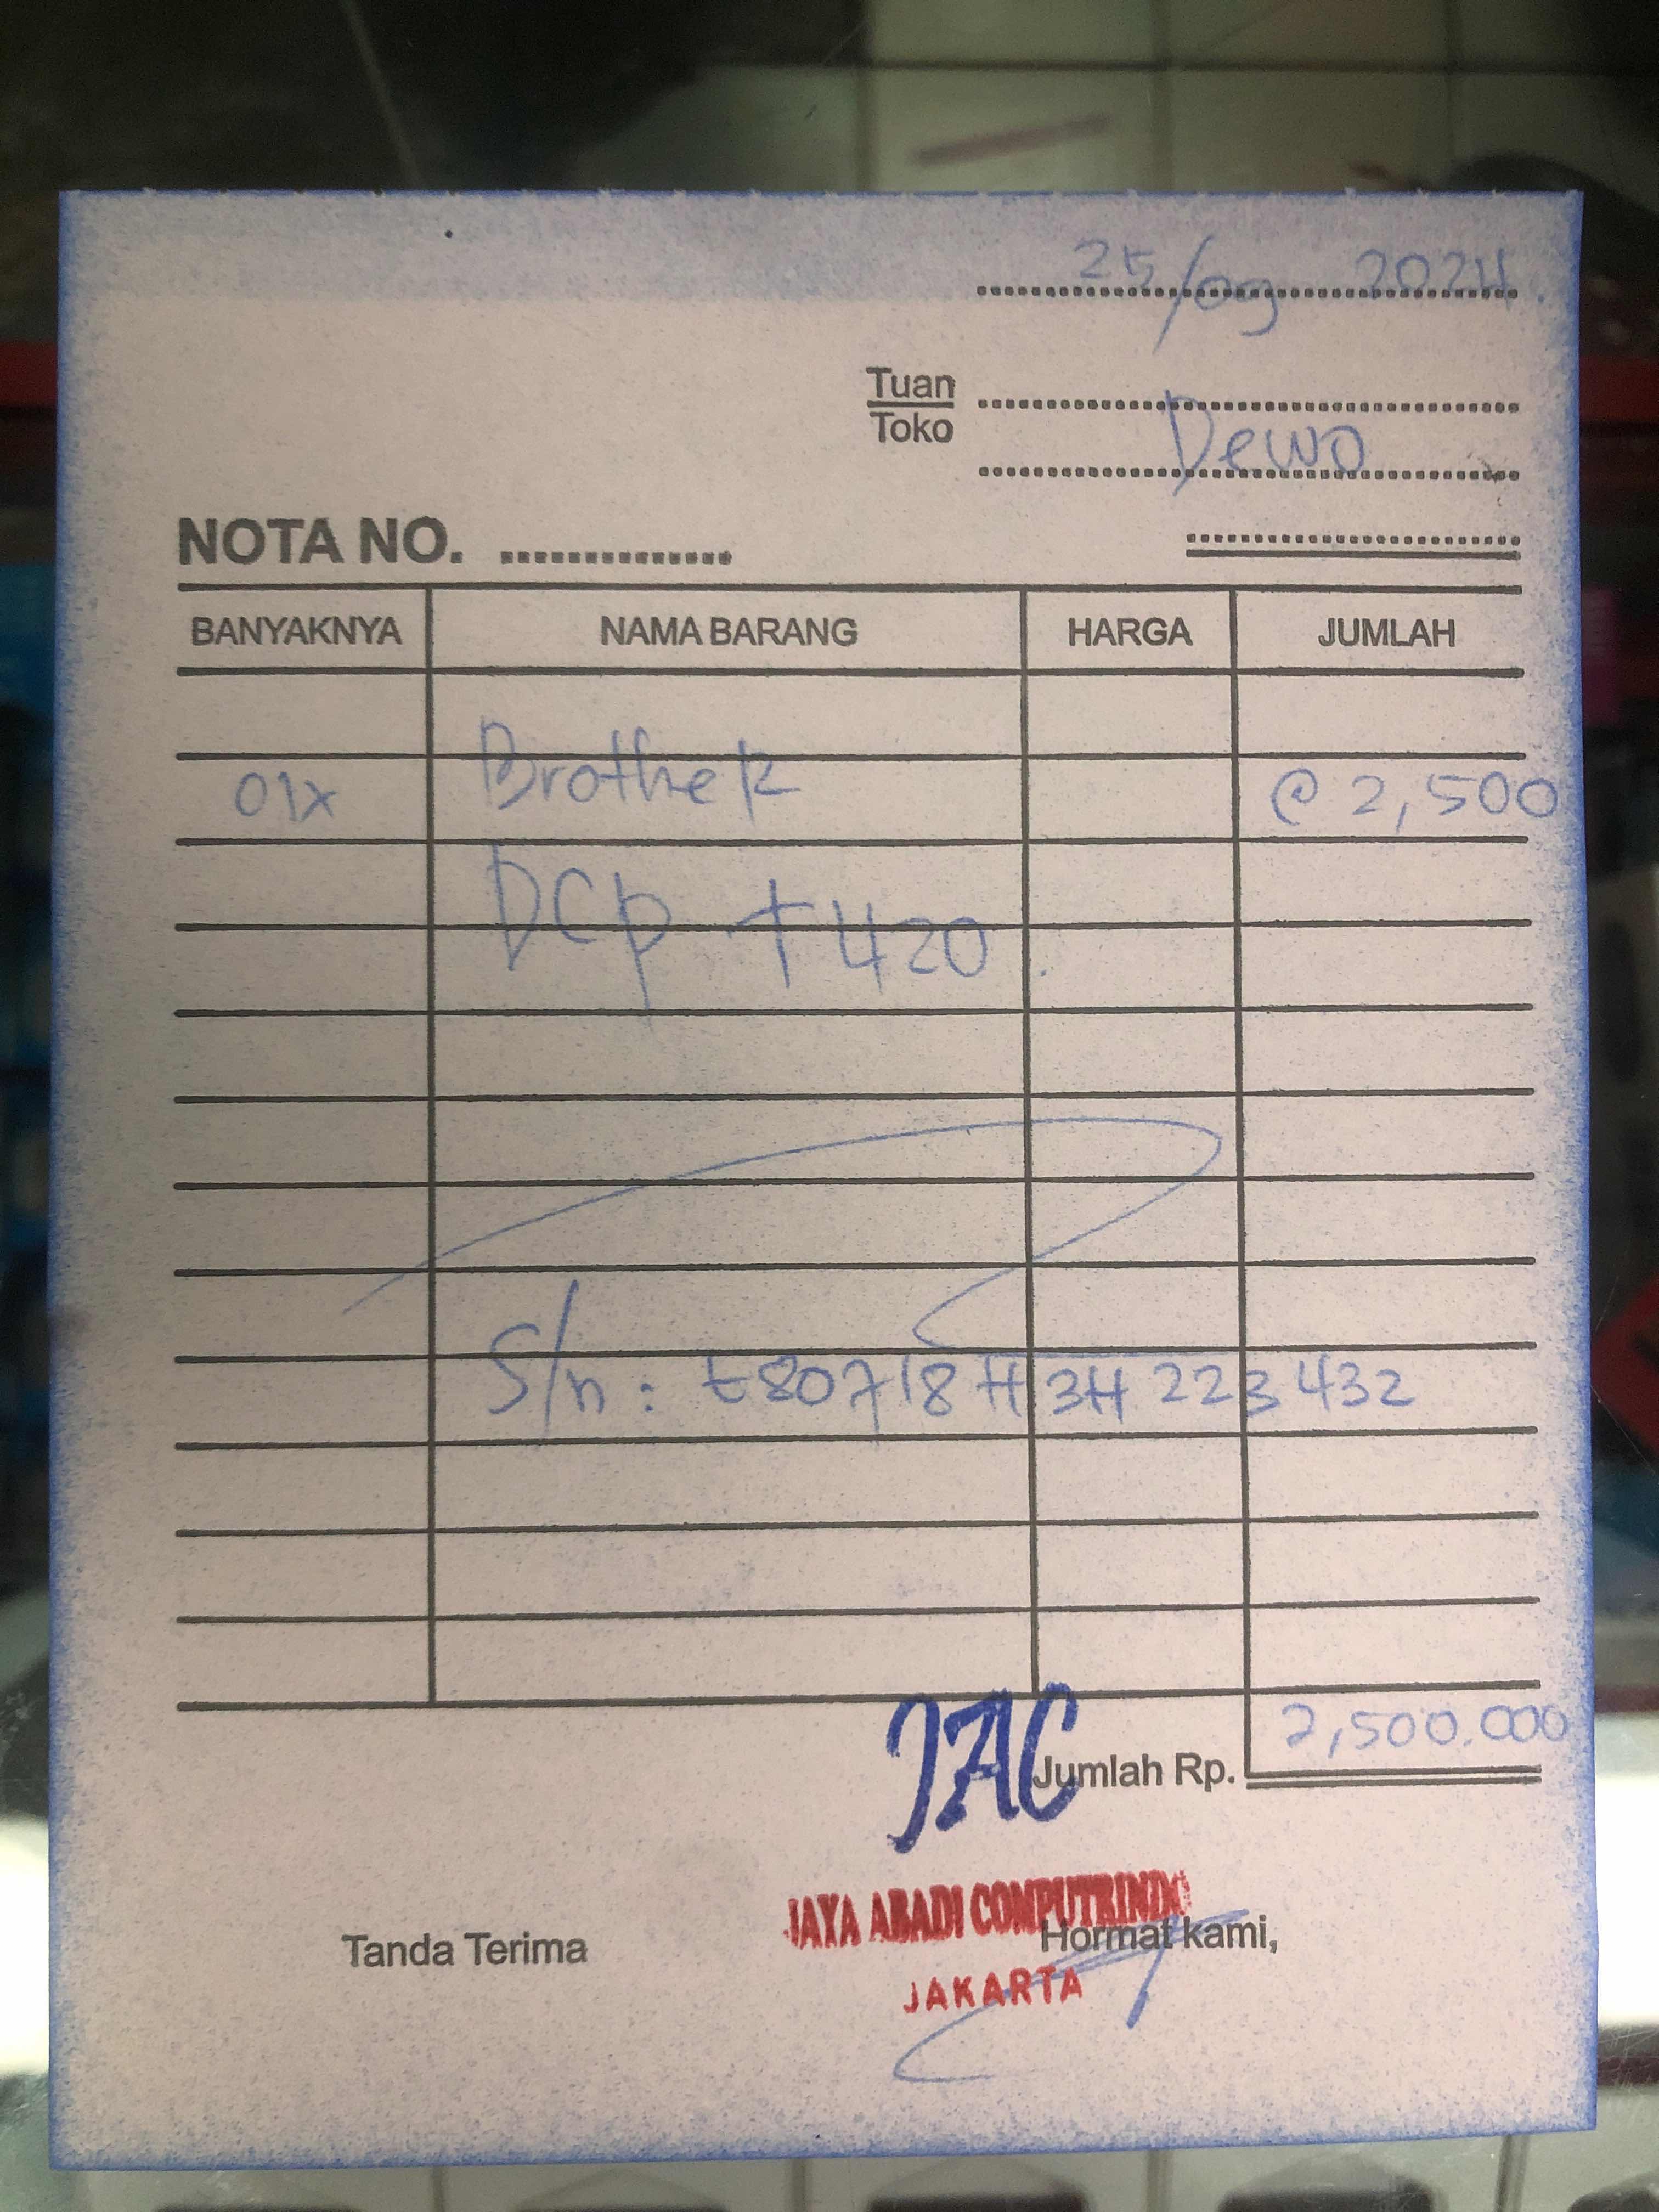 25/09 2024.
Tuan
Toko
Dewo
NOTA NO.
BANYAKNYA NAMA BARANG HARGA JUMLAH
01x Brother @ 2,500
DCP T420.
S/n : E80718H3H223432
JAC
Jumlah Rp. 2,500.000
JAYA ABADI COMPUTRINDO
Tanda Terima Hormat kami,
JAKARTA